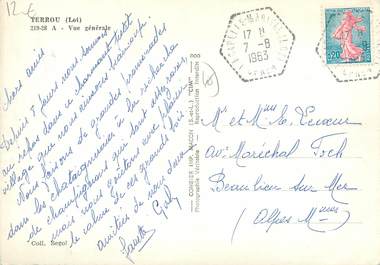 12 €
TERROU (Lot)
219-28 A - Vue générale
Chers amis
Depuis 8 jours nous sommes
au repos dans ce charmant petit
village que nous aimons beaucoup.
Nous faisons de grandes promenades
dans les châtaigneraies à la recherche
de champignons qui sont assez rares
mais nous goûtons avec plaisir
le calme de ces grands bois
amitiés de nous deux
Coll. Segol
COMBIER IMP. MACON (S.-et-L.) "CIM"
Photographie Véritable - Reproduction interdite
LACAPELLE-MARIVAL
17 H
7-8
1963
LOT
0,20
Mr et Mme Le
Av. Maréchal Foch
Beaulieu sur Mer
(Alpes Mmes)